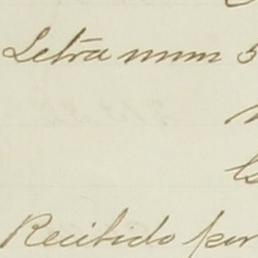 Letra num 5
Recibido por